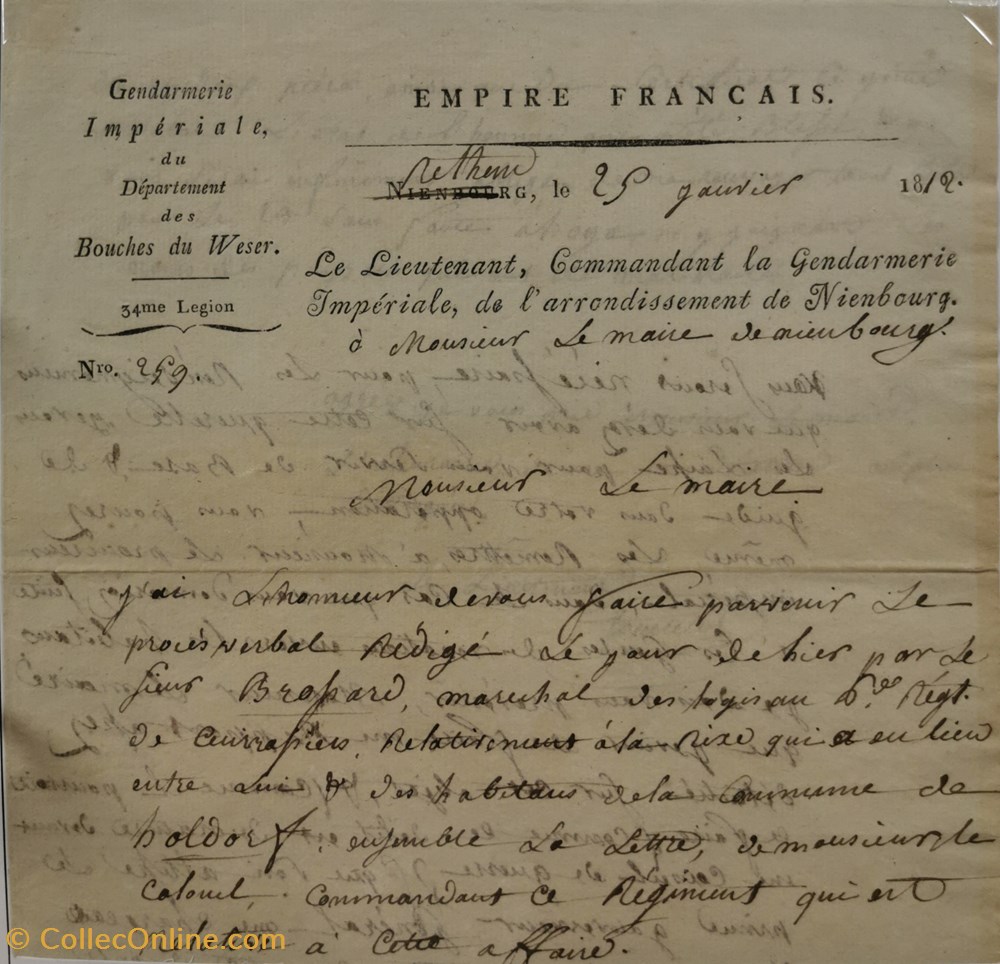 Gendarmerie
Impériale,
du
Département
des
Bouches du Weser.
34me Legion
Nro. 259.
EMPIRE FRANCAIS.
Rethem
NIENBOURG, le 25 janvier 1812.
Le Lieutenant, Commandant la Gendarmerie
Impériale, de l'arrondissement de Nienbourg.
à Monsieur Le maire de nienbourg.
Monsieur Le maire
j'ai L'honneur de vous faire parvenir Le
procès verbal Rédigé Le jour de hier par Le
sieur Brossard, marechal des logis au Régt.
de Cuirassiers, Relativement à la Rixe qui a eu lieu
entre Lui & des habitans de la Commune de
holdorf, ensemble La Lettre, de monsieur le
Colonel, Commandant ce Régiment qui est
Relative à Cette affaire.
© CollecOnline.com